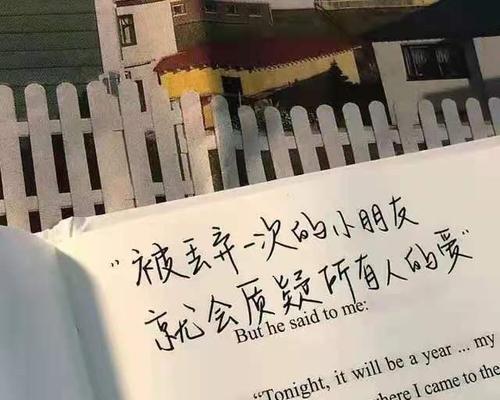 "被丢弃一次的小朋友
就会质疑所有人的爱"
But he said to me:
“Tonight, it will be a year ... my
where I came to the